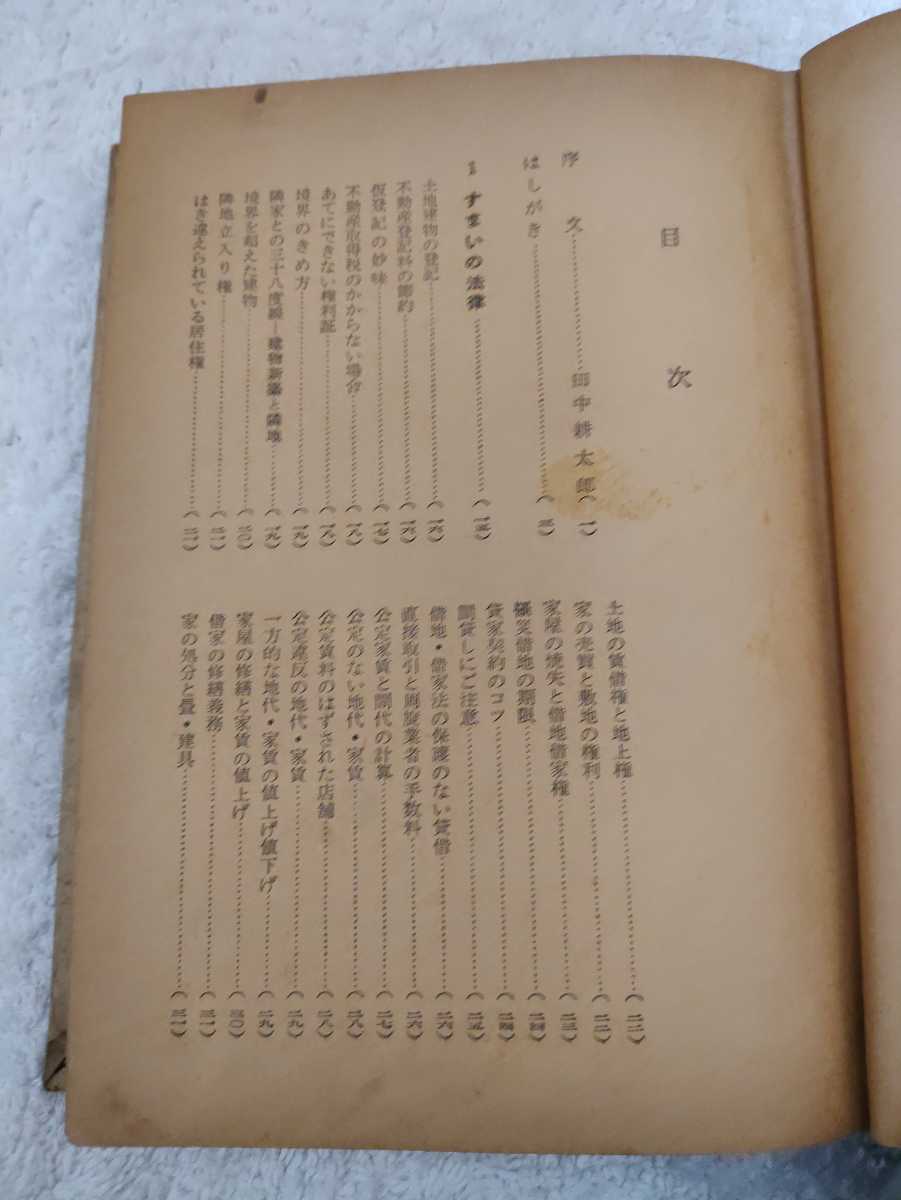 目次
序文……………………田中耕太郎（一）
はしがき……………………（三）
すまいの法律……………………（一五）
土地建物の登記……………………（一六）
不動産登記料の節約……………………（一六）
仮登記の妙味……………………（一七）
不動産取得税のかからない場合……………………（一八）
あてにできない権利証……………………（一八）
境界のきめ方……………………（一九）
隣家との三十八度線―建物新築と隣地……………………（一九）
境界を超えた建物……………………（二〇）
隣地立入り権……………………（二一）
はき違えられている居住権……………………（二一）
土地の賃借権と地上権……………………（二二）
家の売買と敷地の権利……………………（二二）
家屋の焼失と借地借家権……………………（二三）
罹災借地の期限……………………（二四）
貸家契約のコツ……………………（二四）
間貸しにご注意……………………（二五）
借地・借家法の保護のない貸借……………………（二六）
直接取引と周旋業者の手数料……………………（二六）
公定家賃と間代の計算……………………（二七）
公定のない地代・家賃……………………（二八）
公定賃料のはずされた店舗……………………（二八）
公定違反の地代・家賃……………………（二九）
一方的な地代・家賃の値上げ値下げ……………………（二九）
家屋の修繕と家賃の値上げ……………………（三〇）
借家の修繕義務……………………（三一）
家の処分と畳・建具……………………（三一）